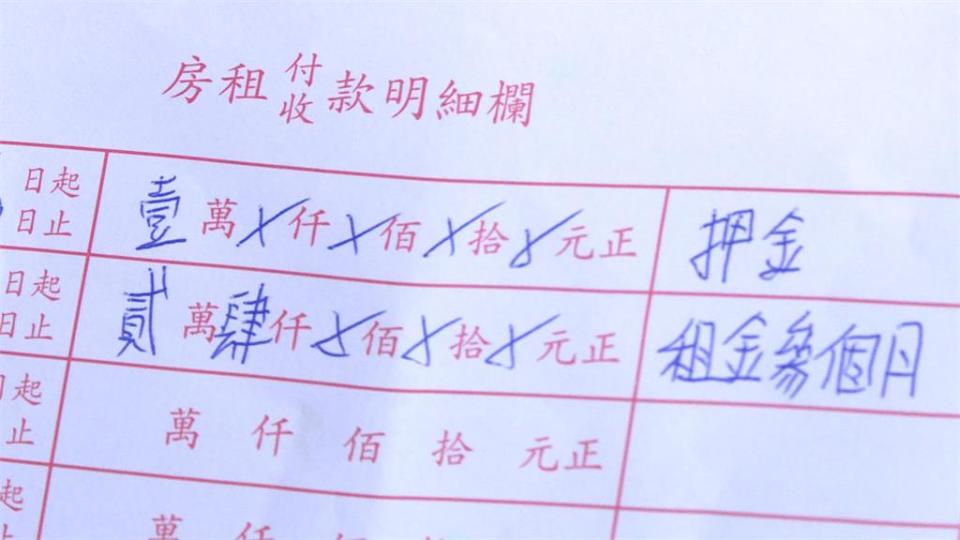 房租付收款明細欄
日起
日止
壹萬X仟X佰X拾X元正
押金
日起
日止
貳萬肆仟X佰X拾X元正
租金參個月
日起
止
萬仟佰拾元正
起
止
萬仟佰拾